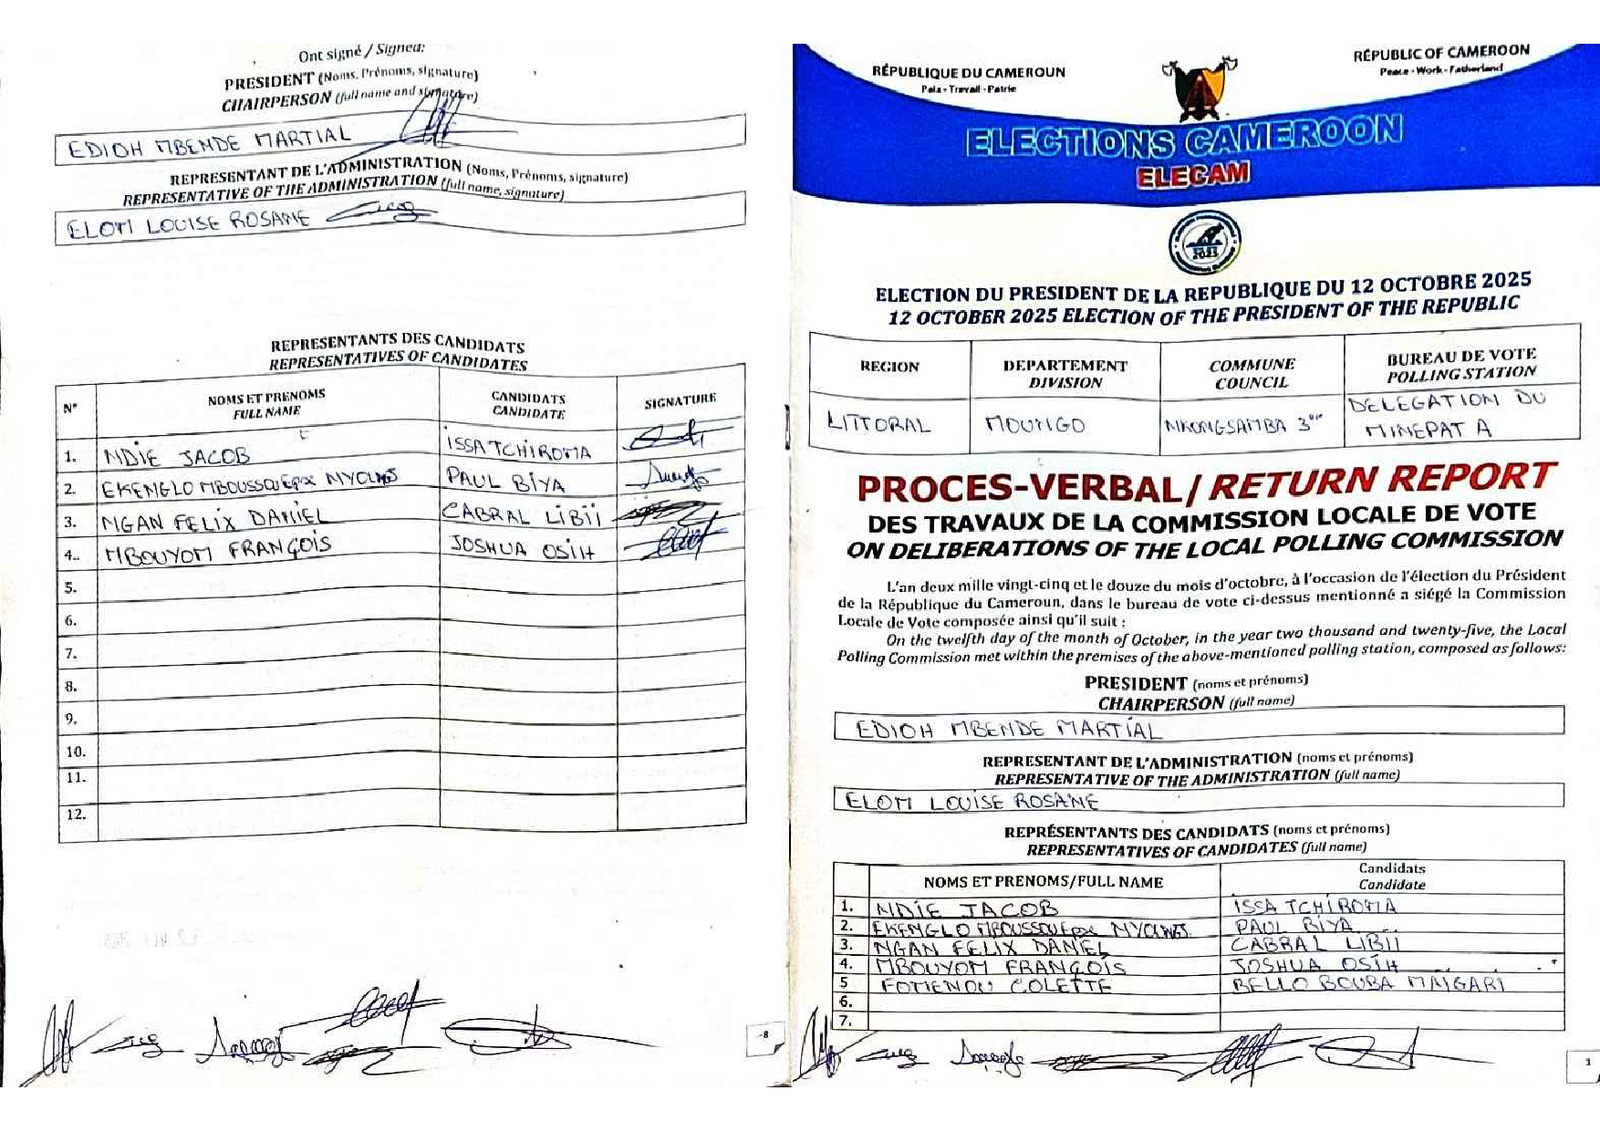 Ont signé / Signed:
PRESIDENT (Noms, Prénoms, signature)
CHAIRPERSON (full name and signature)
EDIOH MBENDE MARTIAL
REPRESENTANT DE L'ADMINISTRATION (Noms, Prénoms, signature)
REPRESENTATIVE OF THE ADMINISTRATION (full name, signature)
ELOM LOUISE ROSANE
REPRESENTANTS DES CANDIDATS
REPRESENTATIVES OF CANDIDATES
N° NOMS ET PRENOMS FULL NAME CANDIDATS CANDIDATE SIGNATURE
1. NDIE JACOB ISSA TCHIROMA
2. EKENGLO MBOUSSOU Epse NYOUNGS PAUL BIYA
3. NGAN FELIX DANIEL CABRAL LIBII
4. MBOUYOM FRANÇOIS JOSHUA OSIH
5.
6.
7.
8.
9.
10.
11.
12.
8
RÉPUBLIQUE DU CAMEROUN
Paix - Travail - Patrie
RÉPUBLIC OF CAMEROON
Peace - Work - Fatherland
ELECTIONS CAMEROON
ELECAM
2025
ELECTION DU PRESIDENT DE LA REPUBLIQUE DU 12 OCTOBRE 2025
12 OCTOBER 2025 ELECTION OF THE PRESIDENT OF THE REPUBLIC
REGION DEPARTEMENT DIVISION COMMUNE COUNCIL BUREAU DE VOTE POLLING STATION
LITTORAL MOUNGO NKONGSAMBA 3eme DELEGATION DU MINEPAT A
PROCES-VERBAL / RETURN REPORT
DES TRAVAUX DE LA COMMISSION LOCALE DE VOTE
ON DELIBERATIONS OF THE LOCAL POLLING COMMISSION
L'an deux mille vingt-cinq et le douze du mois d'octobre, à l'occasion de l'élection du Président
de la République du Cameroun, dans le bureau de vote ci-dessus mentionné a siégé la Commission
Locale de Vote composée ainsi qu'il suit :
On the twelfth day of the month of October, in the year two thousand and twenty-five, the Local
Polling Commission met within the premises of the above-mentioned polling station, composed as follows:
PRESIDENT (noms et prénoms)
CHAIRPERSON (full name)
EDIOH MBENDE MARTIAL
REPRESENTANT DE L'ADMINISTRATION (noms et prénoms)
REPRESENTATIVE OF THE ADMINISTRATION (full name)
ELOM LOUISE ROSANE
REPRÉSENTANTS DES CANDIDATS (noms et prénoms)
REPRESENTATIVES OF CANDIDATES (full name)
NOMS ET PRENOMS/FULL NAME Candidats Candidate
1. NDIE JACOB ISSA TCHIROMA
2. EKENGLO MBOUSSOU Epse NYOUNGS PAUL BIYA
3. NGAN FELIX DANIEL CABRAL LIBII
4. MBOUYOM FRANÇOIS JOSHUA OSIH
5 FOMENOU COLETTE BELLO BOUBA MAIGARI
6.
7.
1